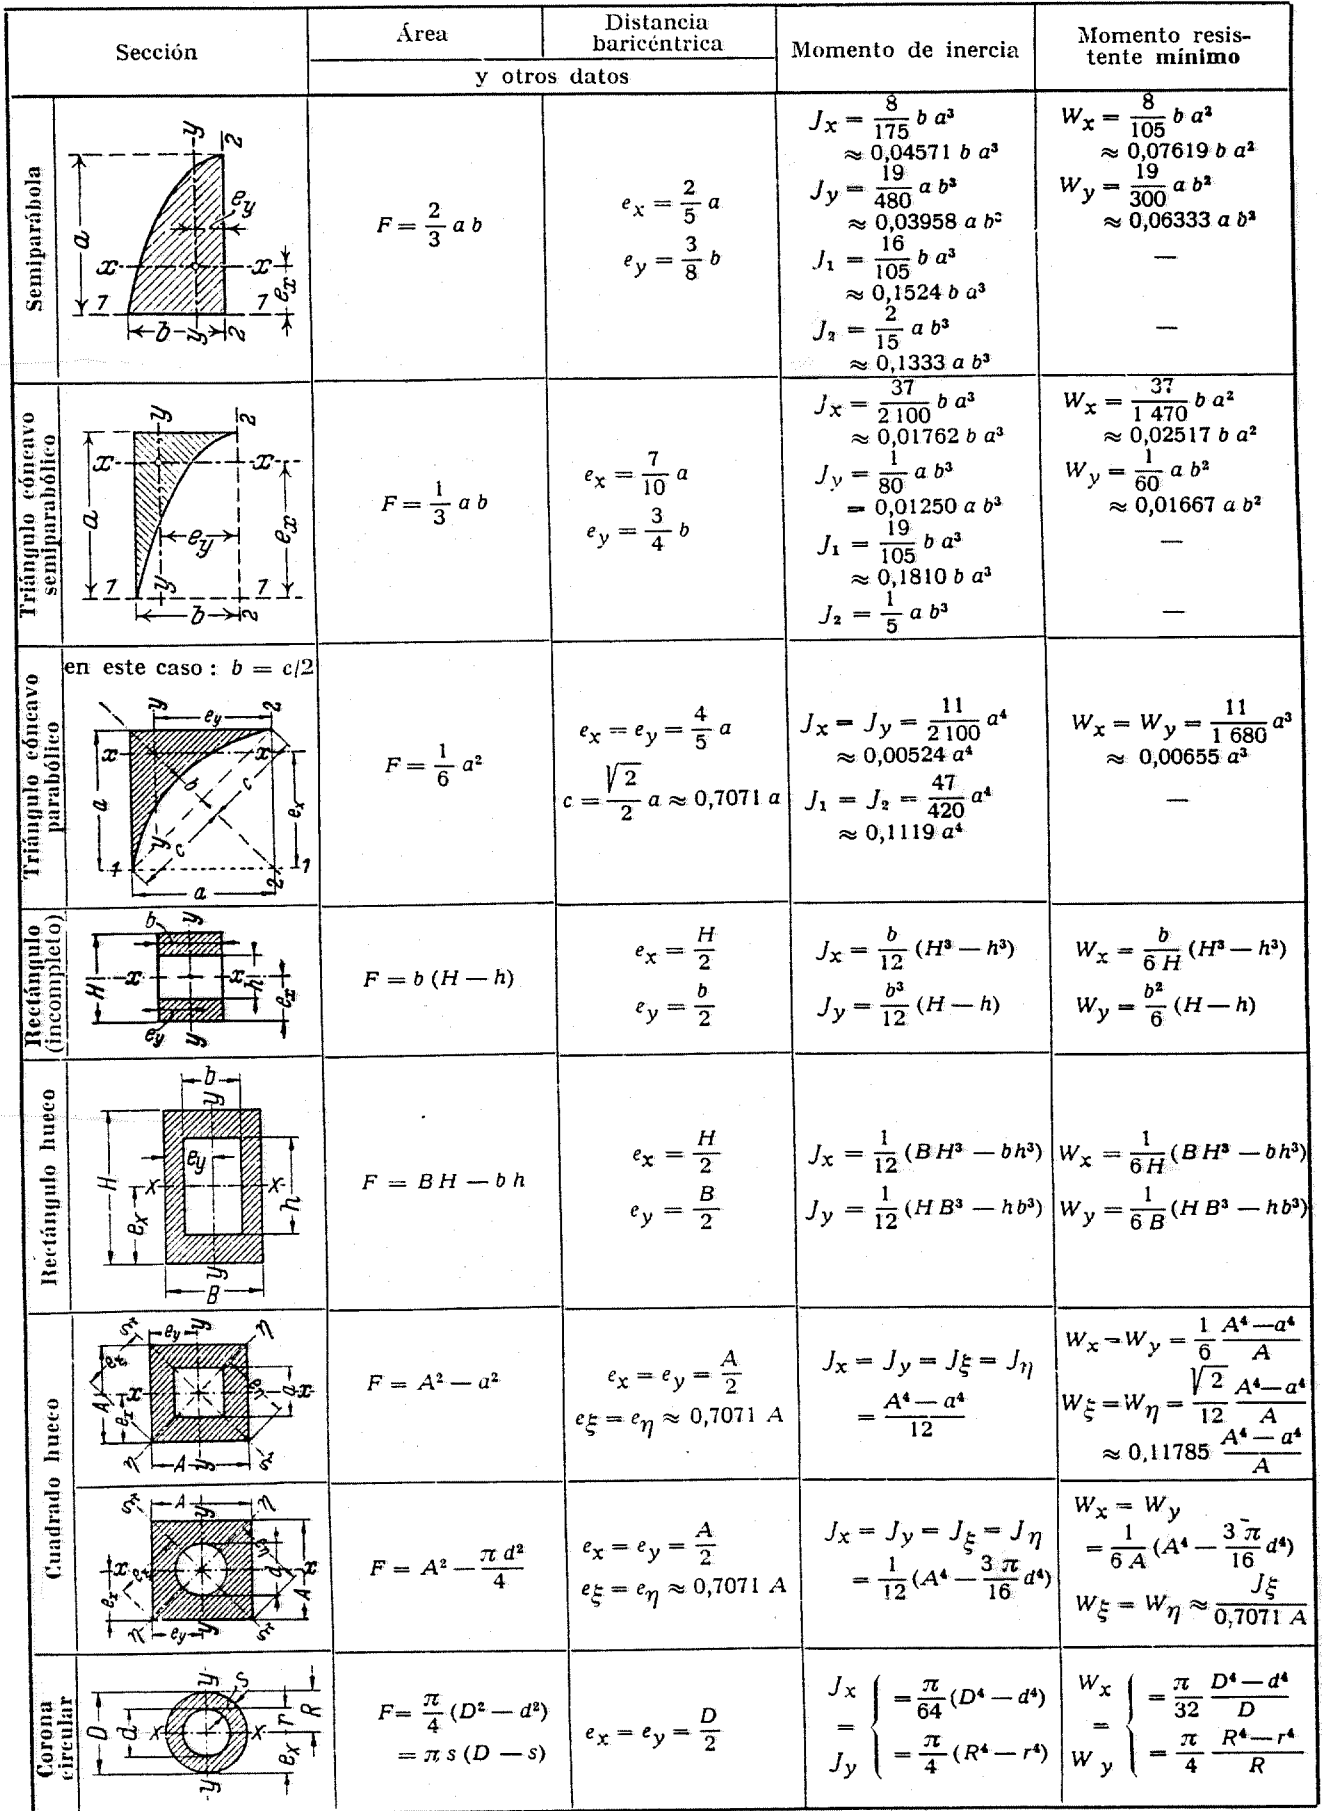 Sección
Área
Distancia baricéntrica
y otros datos
Momento de inercia
Momento resistente mínimo
Semiparábola
a
x x
y y
1 1
2 2
b
e_y
e_x
F = 2/3 a b
e_x = 2/5 a
e_y = 3/8 b
J_x = 8/175 b a³
≈ 0,04571 b a³
J_y = 19/480 a b³
≈ 0,03958 a b³
J₁ = 16/105 b a³
≈ 0,1524 b a³
J₂ = 2/15 a b³
≈ 0,1333 a b³
W_x = 8/105 b a²
≈ 0,07619 b a²
W_y = 19/300 a b²
≈ 0,06333 a b²
—
—
Triángulo cóncavo semiparabólico
a
x x
y y
1 1
2 2
b
e_y
e_x
F = 1/3 a b
e_x = 7/10 a
e_y = 3/4 b
J_x = 37/2 100 b a³
≈ 0,01762 b a³
J_y = 1/80 a b³
= 0,01250 a b³
J₁ = 19/105 b a³
≈ 0,1810 b a³
J₂ = 1/5 a b³
W_x = 37/1 470 b a²
≈ 0,02517 b a²
W_y = 1/60 a b²
≈ 0,01667 a b²
—
—
Triángulo cóncavo parabólico
en este caso : b = c/2
y y
2 2
e_y
x x
b
c c
a
e_x
1 1
a
F = 1/6 a²
e_x = e_y = 4/5 a
c = √2/2 a ≈ 0,7071 a
J_x = J_y = 11/2 100 a⁴
≈ 0,00524 a⁴
J₁ = J₂ = 47/420 a⁴
≈ 0,1119 a⁴
W_x = W_y = 11/1 680 a³
≈ 0,00655 a³
—
Rectángulo (incompleto)
b
y y
H
x x
h
e_x
e_y
F = b (H — h)
e_x = H/2
e_y = b/2
J_x = b/12 (H³ — h³)
J_y = b³/12 (H — h)
W_x = b/6 H (H³ — h³)
W_y = b²/6 (H — h)
Rectángulo hueco
b
y y
H
e_y
x x
h
e_x
B
F = B H — b h
e_x = H/2
e_y = B/2
J_x = 1/12 (B H³ — b h³)
J_y = 1/12 (H B³ — h b³)
W_x = 1/6 H (B H³ — b h³)
W_y = 1/6 B (H B³ — h b³)
Cuadrado hueco
ξ e_y y η
e_ξ e_η
A x a x
e_x
η A y ξ
F = A² — a²
e_x = e_y = A/2
e_ξ = e_η ≈ 0,7071 A
J_x = J_y = J_ξ = J_η
= A⁴ — a⁴/12
W_x = W_y = 1/6 A⁴ — a⁴/A
W_ξ = W_η = √2/12 A⁴ — a⁴/A
≈ 0,11785 A⁴ — a⁴/A
ξ A y η
x e_ξ d A x
e_x
η e_y y ξ
F = A² — π d²/4
e_x = e_y = A/2
e_ξ = e_η ≈ 0,7071 A
J_x = J_y = J_ξ = J_η
= 1/12 (A⁴ — 3 π/16 d⁴)
W_x = W_y
= 1/6 A (A⁴ — 3 π/16 d⁴)
W_ξ = W_η ≈ J_ξ/0,7071 A
Corona circular
y s
D d x x r R
e_x
y
F = π/4 (D² — d²)
= π s (D — s)
e_x = e_y = D/2
J_x = J_y { = π/64 (D⁴ — d⁴)
= π/4 (R⁴ — r⁴)
W_x = W_y { = π/32 D⁴ — d⁴/D
= π/4 R⁴ — r⁴/R